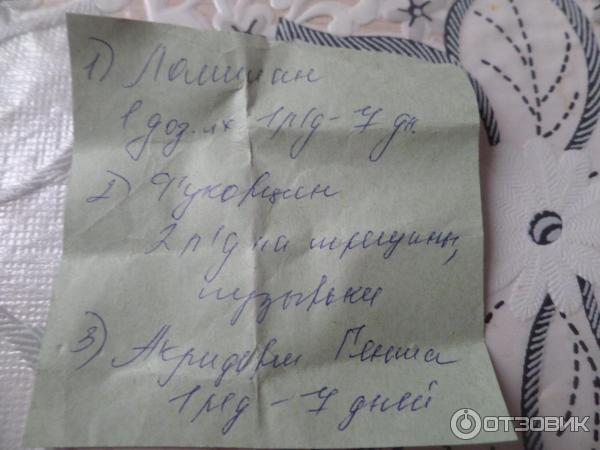 1) Ломилан
1 доз. лж 1 р/д - 7 дн.
2) Фукорцин
2 р/д на трещины,
пузырьки
3) Акридерм Гента
1 р/д - 7 дней
ОТЗОВИК